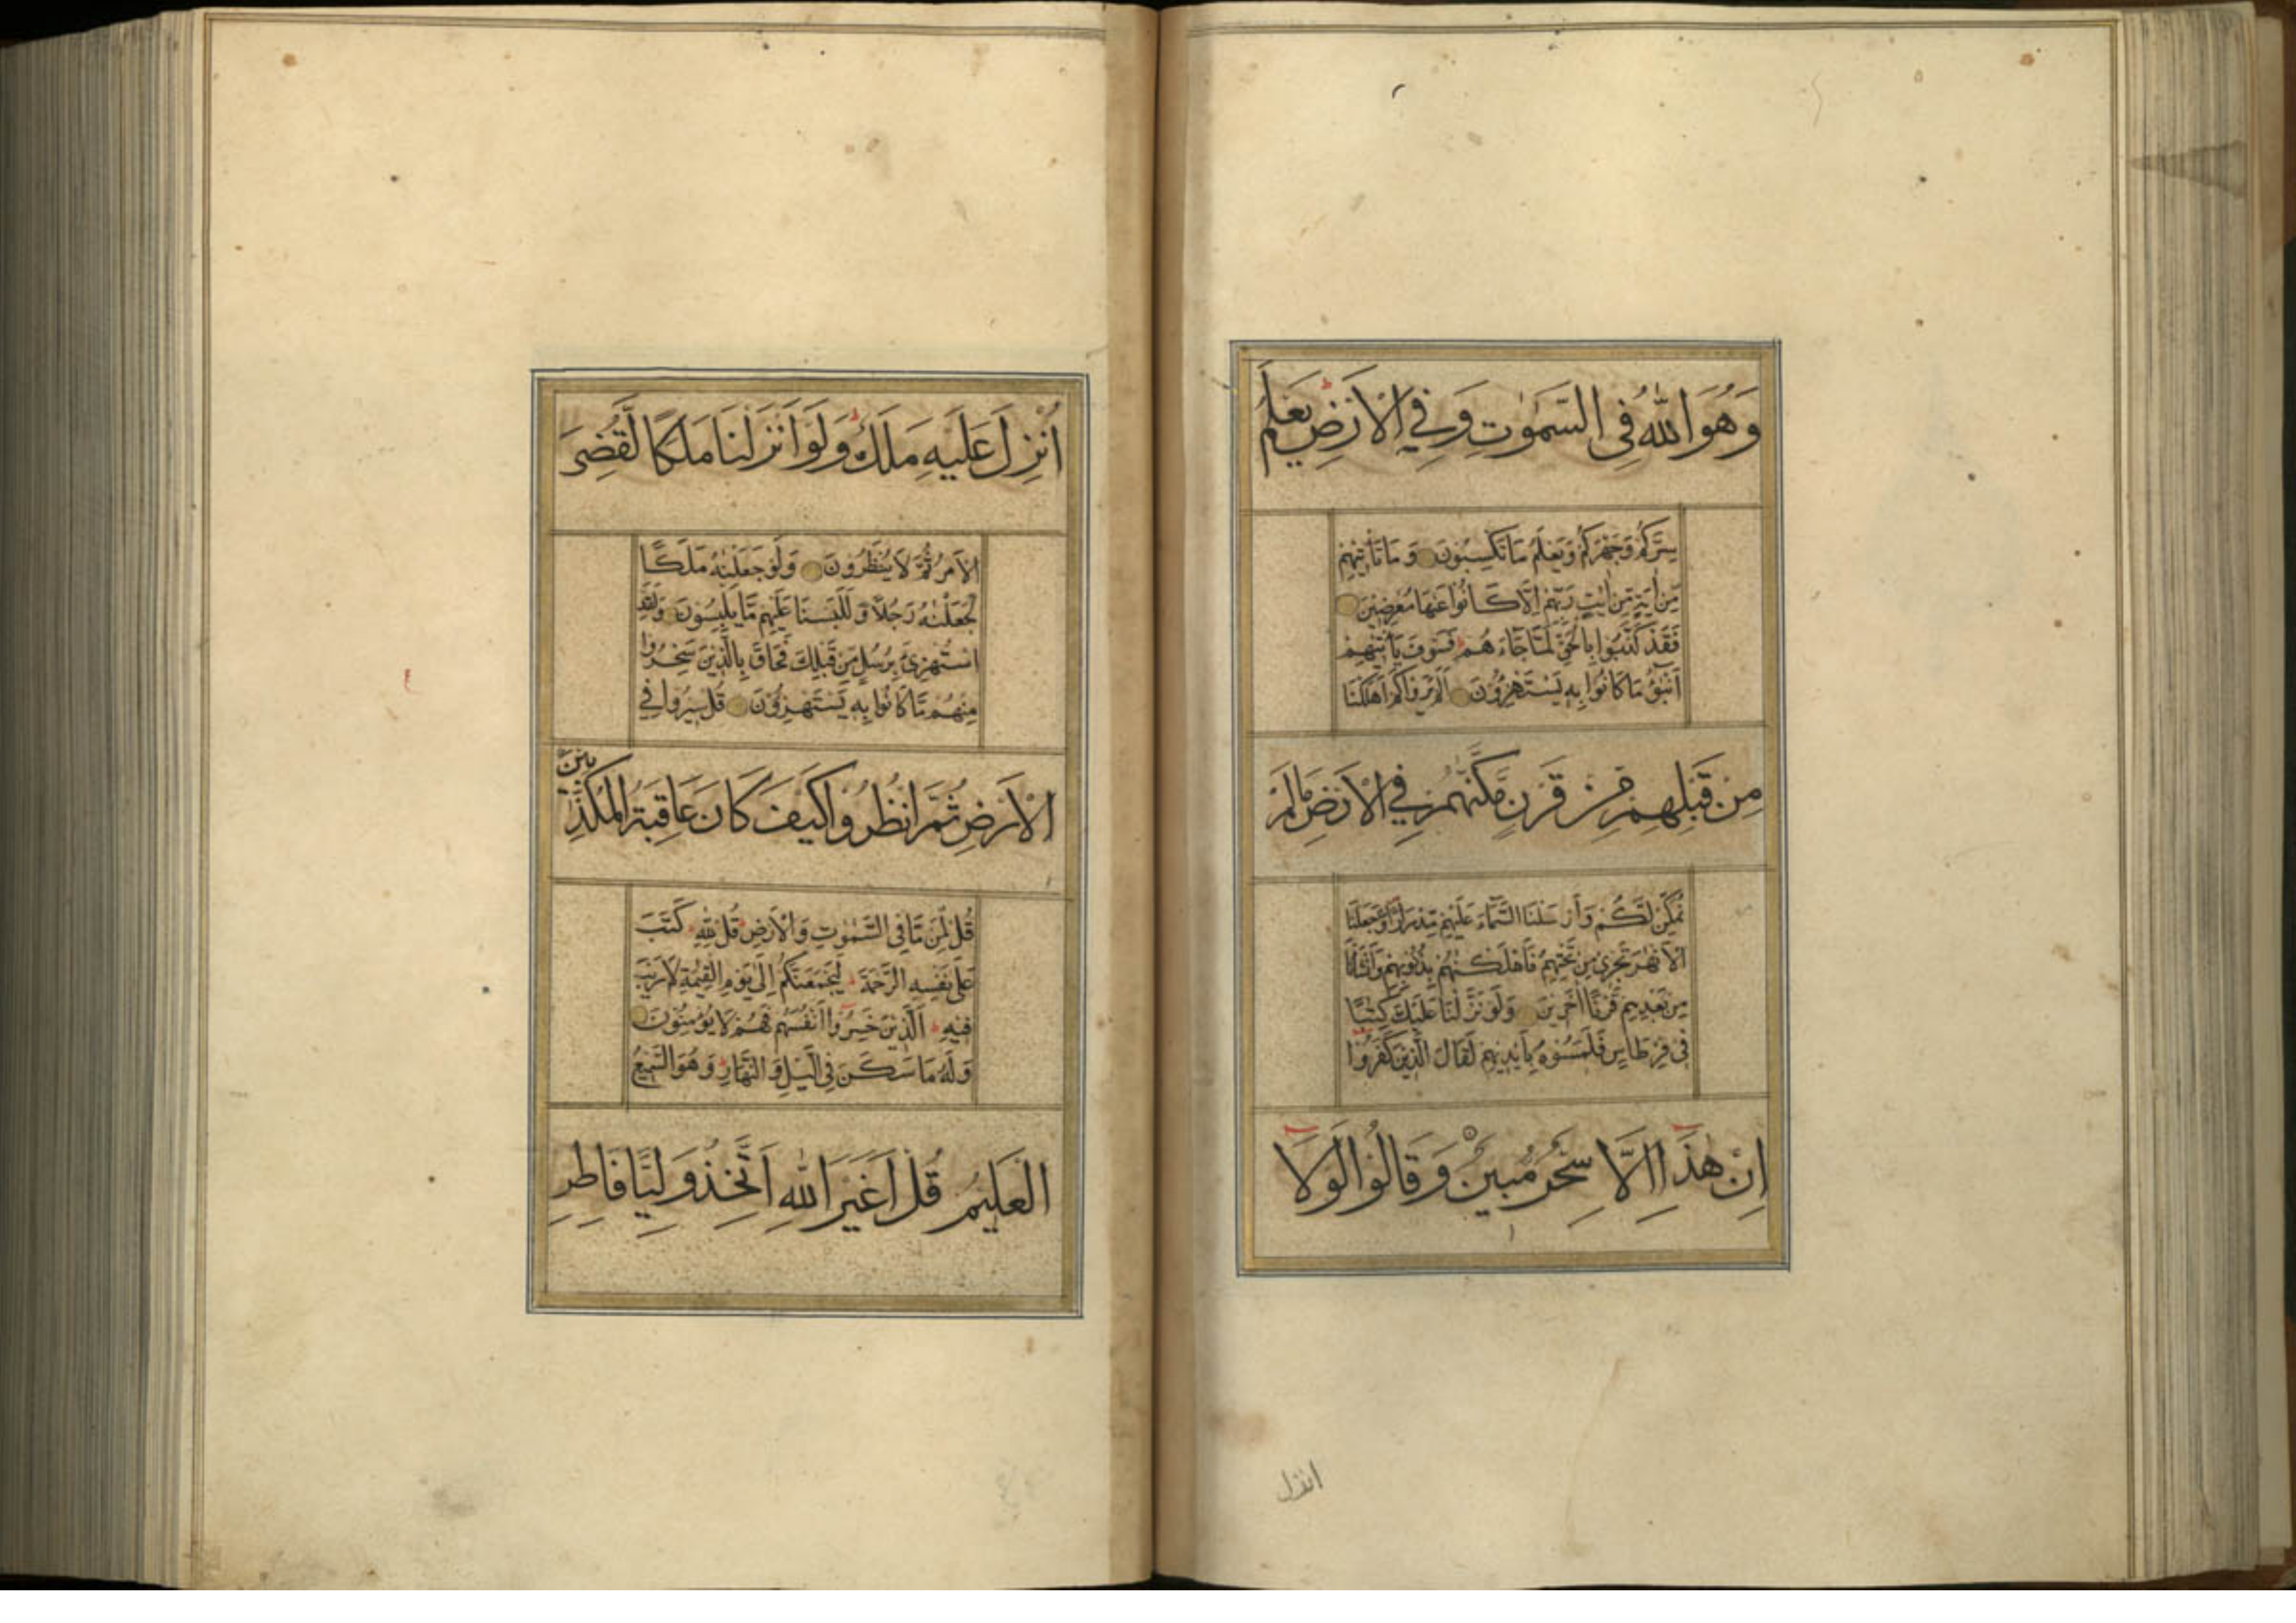 وَهُوَ اللّٰهُ فِي السَّمٰوٰتِ وَفِي الْاَرْضِ يَعْلَمُ
سِرَّكُمْ وَجَهْرَكُمْ وَيَعْلَمُ مَا تَكْسِبُونَ وَمَا تَأْتِيهِمْ
مِنْ اٰيَةٍ مِنْ اٰيٰتِ رَبِّهِمْ اِلَّا كَانُوا عَنْهَا مُعْرِضِينَ
فَقَدْ كَذَّبُوا بِالْحَقِّ لَمَّا جَاءَهُمْ فَسَوْفَ يَأْتِيهِمْ
اَنْبٰٓؤُا مَا كَانُوا بِهِ يَسْتَهْزِؤُنَ اَلَمْ يَرَوْا كَمْ اَهْلَكْنَا
مِنْ قَبْلِهِمْ مِنْ قَرْنٍ مَكَّنّٰهُمْ فِي الْاَرْضِ مَا لَمْ
نُمَكِّنْ لَكُمْ وَاَرْسَلْنَا السَّمَاءَ عَلَيْهِمْ مِدْرَارًا وَجَعَلْنَا
الْاَنْهٰرَ تَجْرِي مِنْ تَحْتِهِمْ فَاَهْلَكْنٰهُمْ بِذُنُوبِهِمْ وَاَنْشَأْنَا
مِنْ بَعْدِهِمْ قَرْنًا اٰخَرِينَ وَلَوْ نَزَّلْنَا عَلَيْكَ كِتٰبًا
فِي قِرْطَاسٍ فَلَمَسُوهُ بِاَيْدِيهِمْ لَقَالَ الَّذِينَ كَفَرُوا
اِنْ هٰذَا اِلَّا سِحْرٌ مُبِينٌ وَقَالُوا لَوْلَا
انزل
اُنْزِلَ عَلَيْهِ مَلَكٌ وَلَوْ اَنْزَلْنَا مَلَكًا لَقُضِيَ
الْاَمْرُ ثُمَّ لَا يُنْظَرُونَ وَلَوْ جَعَلْنٰهُ مَلَكًا
لَجَعَلْنٰهُ رَجُلًا وَلَلَبَسْنَا عَلَيْهِمْ مَا يَلْبِسُونَ وَلَقَدِ
اسْتُهْزِئَ بِرُسُلٍ مِنْ قَبْلِكَ فَحَاقَ بِالَّذِينَ سَخِرُوا
مِنْهُمْ مَا كَانُوا بِهِ يَسْتَهْزِؤُنَ قُلْ سِيرُوا فِي
الْاَرْضِ ثُمَّ انْظُرُوا كَيْفَ كَانَ عَاقِبَةُ الْمُكَذِّبِينَ
قُلْ لِمَنْ مَا فِي السَّمٰوٰتِ وَالْاَرْضِ قُلْ لِلّٰهِ كَتَبَ
عَلٰى نَفْسِهِ الرَّحْمَةَ لَيَجْمَعَنَّكُمْ اِلٰى يَوْمِ الْقِيٰمَةِ لَا رَيْبَ
فِيهِ اَلَّذِينَ خَسِرُوا اَنْفُسَهُمْ فَهُمْ لَا يُؤْمِنُونَ
وَلَهُ مَا سَكَنَ فِي الَّيْلِ وَالنَّهَارِ وَهُوَ السَّمِيعُ
الْعَلِيمُ قُلْ اَغَيْرَ اللّٰهِ اَتَّخِذُ وَلِيًّا فَاطِرِ